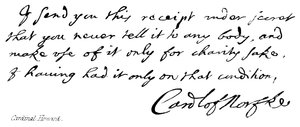 I send you this receipt under secret
that you never tell it to any body, and
make use of it only for charity sake,
I having had it only on that condition,
Card lof Norfke
Cardinal Howard.